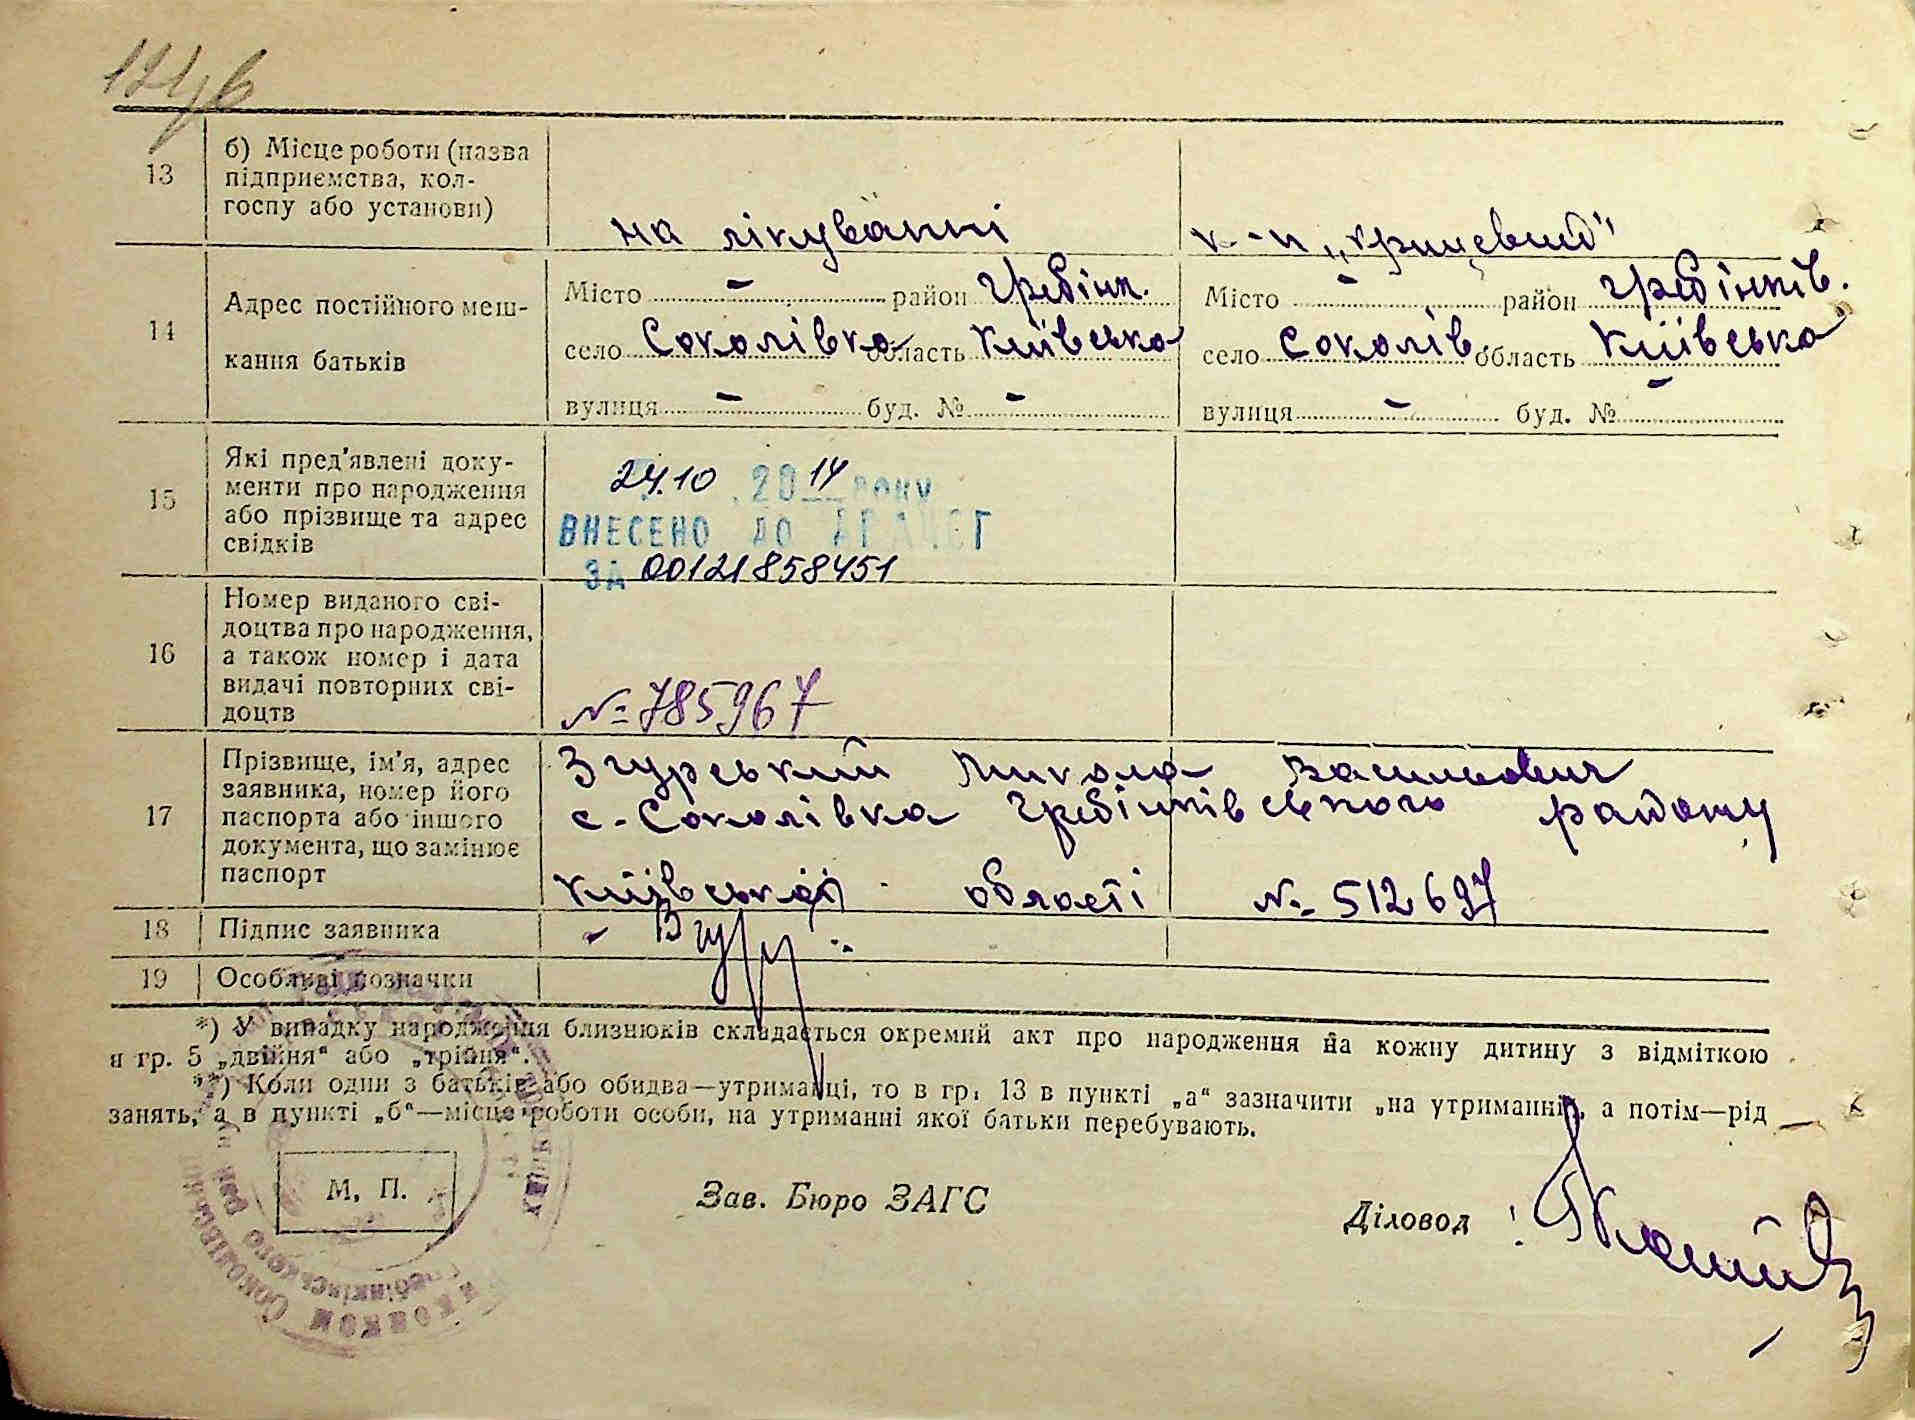 13
б) Місце роботи (назва
підприємства, кол-
госпу або установи)
на лікуванні
14
Адрес постійного меш-
кання батьків
Місто - район Гребінк.
село Соколівка область Київська
вулиця - буд. № -
Місто - район Гребінків.
село Соколів. область Київська
вулиця - буд. № -
15
Які пред'явлені доку-
менти про народження
або прізвище та адрес
свідків
24.10 .2014 року
ВНЕСЕНО ДО ДРАЦСГ
ЗА 00121858451
16
Номер виданого сві-
доцтва про народження,
а також номер і дата
видачі повторних сві-
доцтв
№ 785967
17
Прізвище, ім'я, адрес
заявника, номер його
паспорта або іншого
документа, що замінює
паспорт
Згурський Микола Васильович
с. Соколівка Гребінківського району
Київської області № 512697
18
Підпис заявника
19
Особливі позначки
*) У випадку народження близнюків складається окремий акт про народження на кожну дитину з відміткою
в гр. 5 „двійня“ або „трійня“.
**) Коли один з батьків або обидва—утриманці, то в гр. 13 в пункті „а“ зазначити „на утриманні“, а потім—рід
занять, а в пункті „б“—місце роботи особи, на утриманні якої батьки перебувають.
М. П.
Зав. Бюро ЗАГС
Діловод